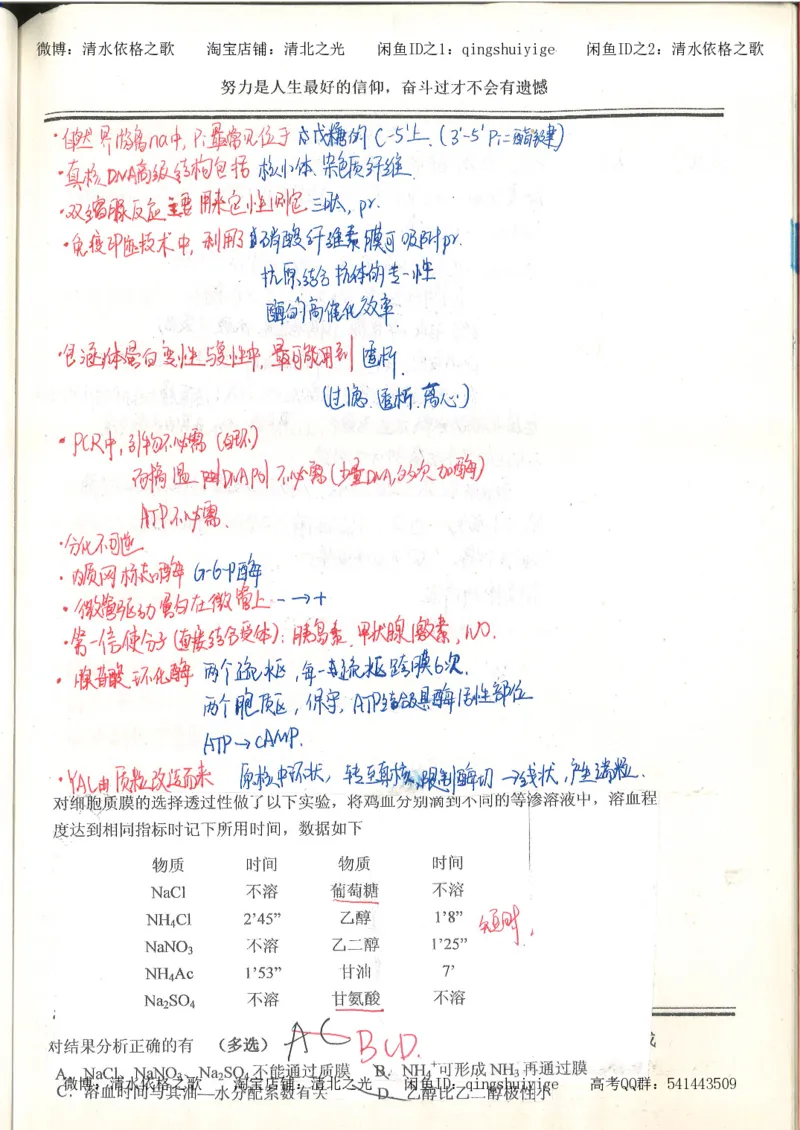 微博：清水依格之歌 淘宝店铺：清北之光 闲鱼ID之1：qingshuiyige 闲鱼ID之2：清水依格之歌
努力是人生最好的信仰，奋斗过才不会有遗憾
·自然界游离na中，Pi最常见位于 戊糖的C-5'上.(3'-5'Pi=酯键)
·真核DNA高级结构包括 核小体、染色质纤维
·双缩脲反应主要用来定性测定三肽，pr.
·免疫印迹技术中，利用了硝酸纤维素膜可吸附pr.
抗原结合抗体的专一性
酶的高催化效率
·包涵体蛋白变性与复性中，最可能用到 透析.
(过滤、透析、离心)
·PCR中，引物不必需
耐高温 DNApol 不必需(少量DNA,多次加酶)
ATP不必需.
·分化不可逆
·内质网标志酶 G-6-P酶
·微管驱动蛋白在微管上 - → +
·第一信使分子(直接结合受体)：胰岛素、甲状腺激素，NO.
·腺苷酸环化酶 两个疏水区，每一疏水区跨膜6次.
两个胞质区，保守，ATP结合及具酶活性部位
ATP→cAMP.
·YAC由质粒改造而来 原核中环状，转至真核，限制酶切→线状，产生端粒.
对细胞质膜的选择透过性做了以下实验，将鸡血分别滴到不同的等渗溶液中，溶血程
度达到相同指标时记下所用时间，数据如下
物质 时间 物质 时间
NaCl 不溶 葡萄糖 不溶
NH₄Cl 2'45” 乙醇 1'8” 短时.
NaNO₃ 不溶 乙二醇 1'25”
NH₄Ac 1'53” 甘油 7'
Na₂SO₄ 不溶 甘氨酸 不溶
对结果分析正确的有 （多选） AC BCD.
A．NaCl、NaNO₃、Na₂SO₄不能通过质膜 B．NH₄⁺可形成NH₃再通过膜
微博：清水依格之歌 淘宝店铺：清北之光 闲鱼ID：qingshuiyige 高考QQ群：541443509
C．溶血时间与其油—水分配系数有关 D．乙醇比乙二醇极性小